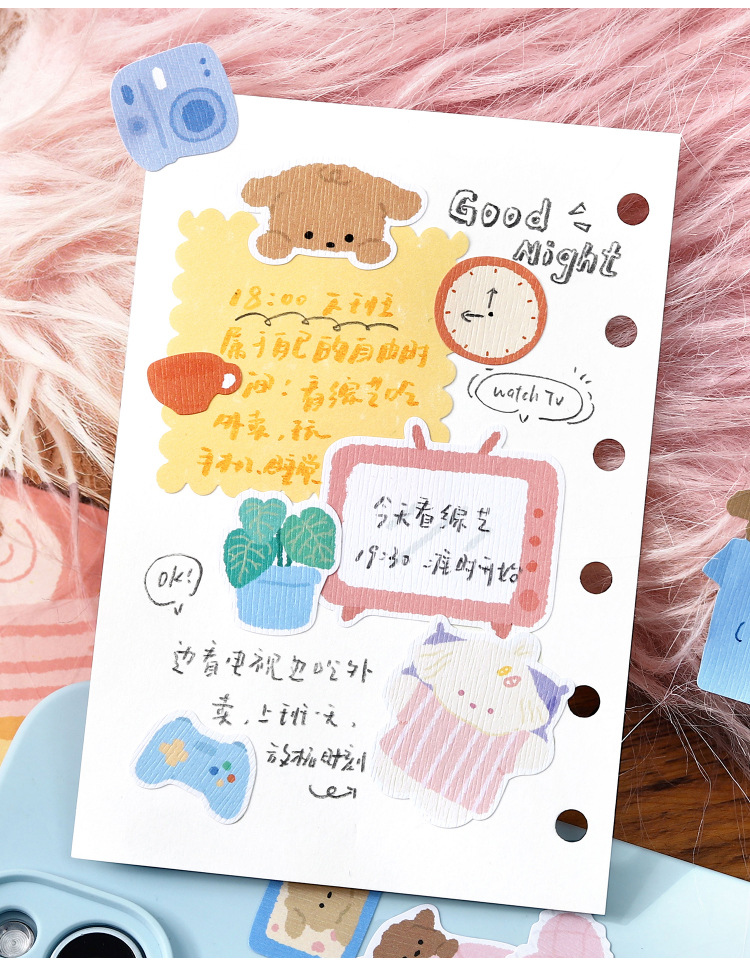 Good
Night
18:00 下班
属于自己的自由时
间：看综艺吃
外卖，玩
手机、睡觉
watch TV
今天看综艺
19:30 准时开始
OK!
边看电视边吃外
卖，上班一天，
放松时刻